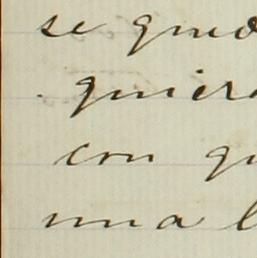 se qued
quier
con qu
una l